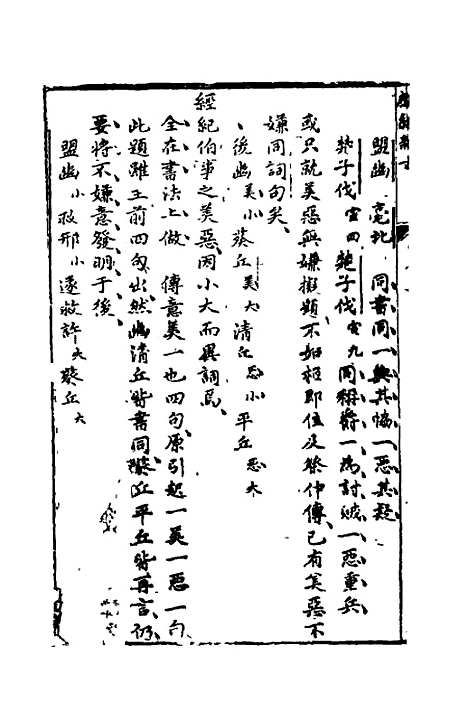 盟幽 亳北 同書同一與其恊一惡其疑
楚子伐宣四 楚子伐宣九同稱爵一為討賊一惡重兵
或只就美惡無嫌擬題不如桓即位及祭仲傳已有美惡不
嫌同詞句矣
後幽美小 葵丘美大 清丘惡小 平丘惡大
經紀伯事之美惡因小大而異詞焉
全在書法上做 傳意美一也四句原引起一美一惡一句
此題雖王前四句出然幽清丘皆書同葵丘平丘皆再言仍
要將不嫌意發明于後
盟幽小 救邢小 遂救許大 葵丘大